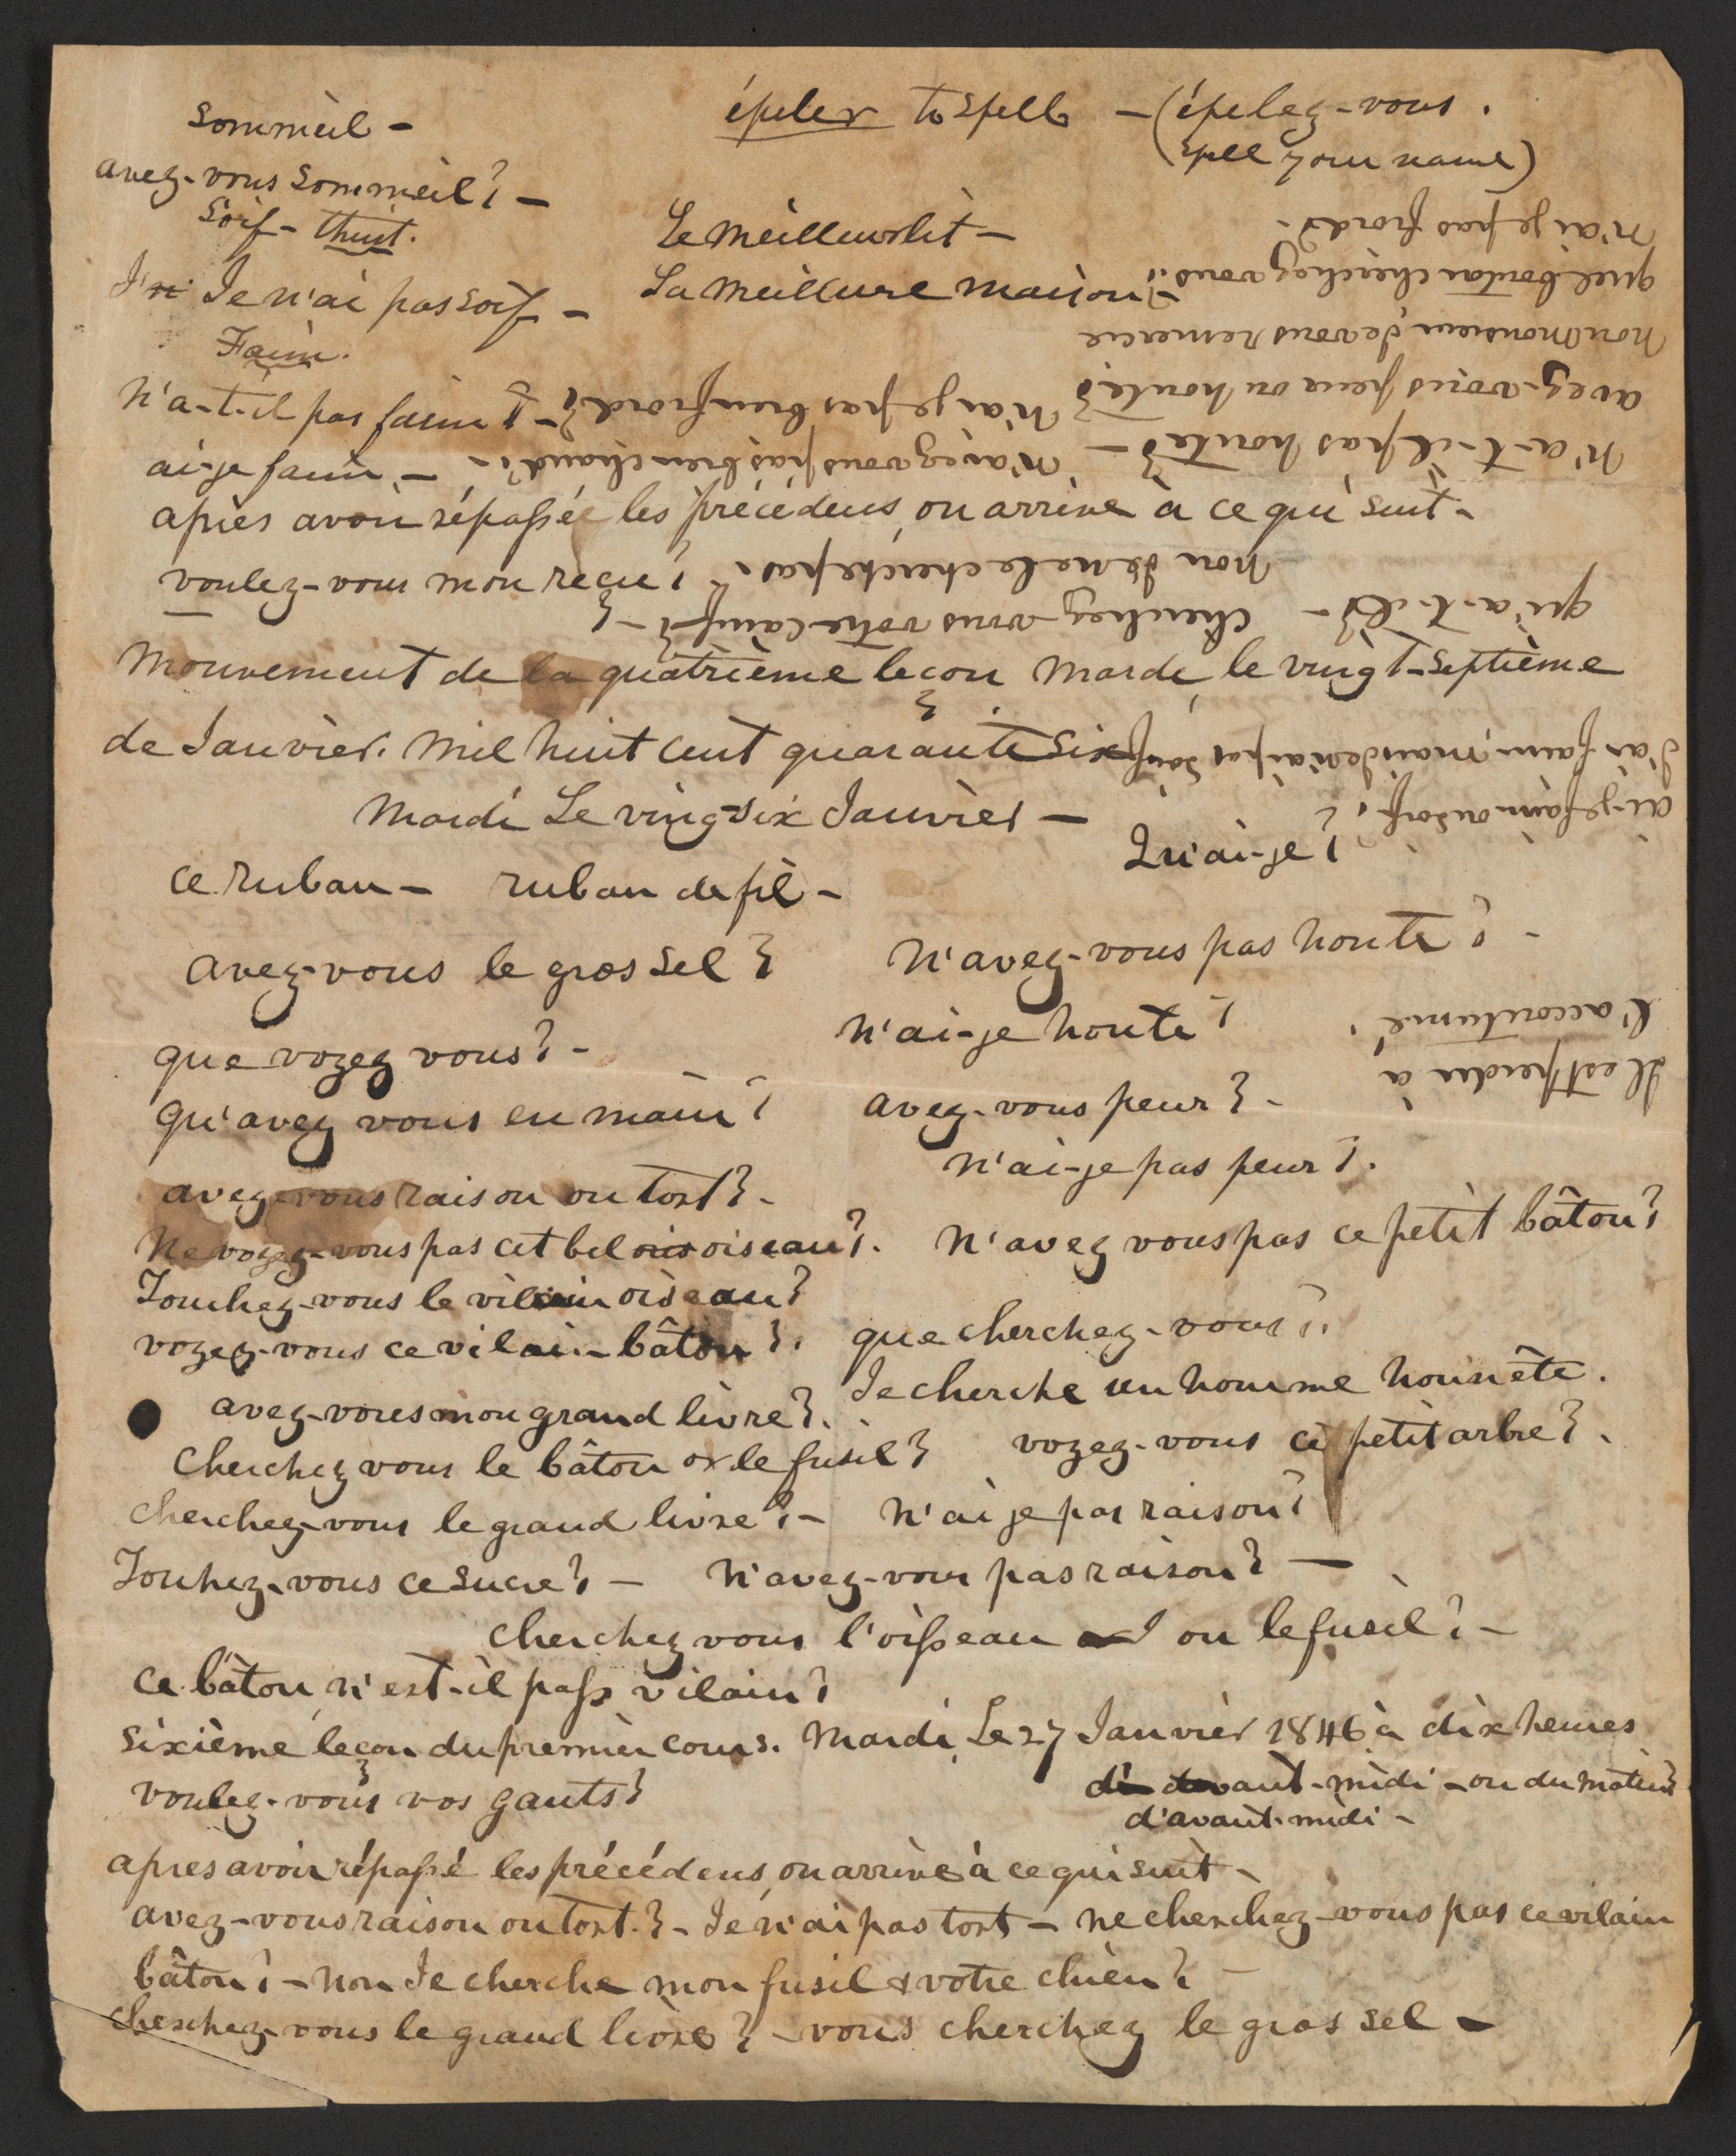 sommeil -
épeler to spell - (épelez-vous.
(spell your name)
avez-vous sommeil? -
soif - thirst.
Le meilleur lit -
La meilleure maison -
Je n'ai pas soif -
Faim.
n'a-t-il pas faim? -
ai-je faim -
après avoir répassée les précédens, on arrive à ce qui suit -
voulez-vous mon reçu?
mouvement de la quatrième leçon Mardi, le vingt-septième
de Janvier. mil huit cent quarante six
Mardi Le ving-six Janvier -
Qu'ai-je?
ce ruban - ruban de fil -
avez-vous le gros sel?
n'avez-vous pas honte? -
n'ai-je honte?
que voyez vous? -
qu'avez vous en main?
avez-vous peur? -
n'ai-je pas peur?.
avez-vous raison ou tort? -
Ne voyez-vous pas cet bel ois oiseau?.
n'avez vous pas ce petit bâton?
Touchez-vous le vilain oiseau?
voyez-vous ce vilain bâton?.
que cherchez-vous?.
Je cherche un homme honnête.
avez-vous mon grand livre?.
cherchez vous le bâton or le fusil?
voyez-vous ce petit arbre?.
cherchez-vous le grand livre? -
n'ai je pas raison?
Touhez-vous ce sucre? -
n'avez-vous pas raison? -
cherchez vous l'oisseau ou le fusil? -
ce bâton n'est-il pass vilain?
sixième leçon du premier cours. Mardi Le 27 Janvier 1846 à dix heures
di devant-midi - ou du matin
voulez-vous vos gants?
d'avant-midi -
apres avoir répassé les précédens, on arrive à ce qui suit -
avez-vous raison ou tort? - Je n'ai pas tort - ne cherchez-vous pas ce vilain
bâton? - non Je cherche mon fusil & votre chien? -
cherchez-vous le grand livre? - vous cherchez le gros sel -
Il est pendu à
l'accoutumé.
ai-je faim ou soif?
J'ai faim, mais Je n'ai pas soif
qu'a-t-il? - cherchez-vous votre canif? -
non Je ne le cherche pas.
n'a-t-il pas honte? - n'avez vous pas bien chaud? -
avez-vous peur ou honte? n'ai je pas bien froid?
non monsieur, Je vous remercie
quel bouton cherchez vous?
n'ai je pas froid? -